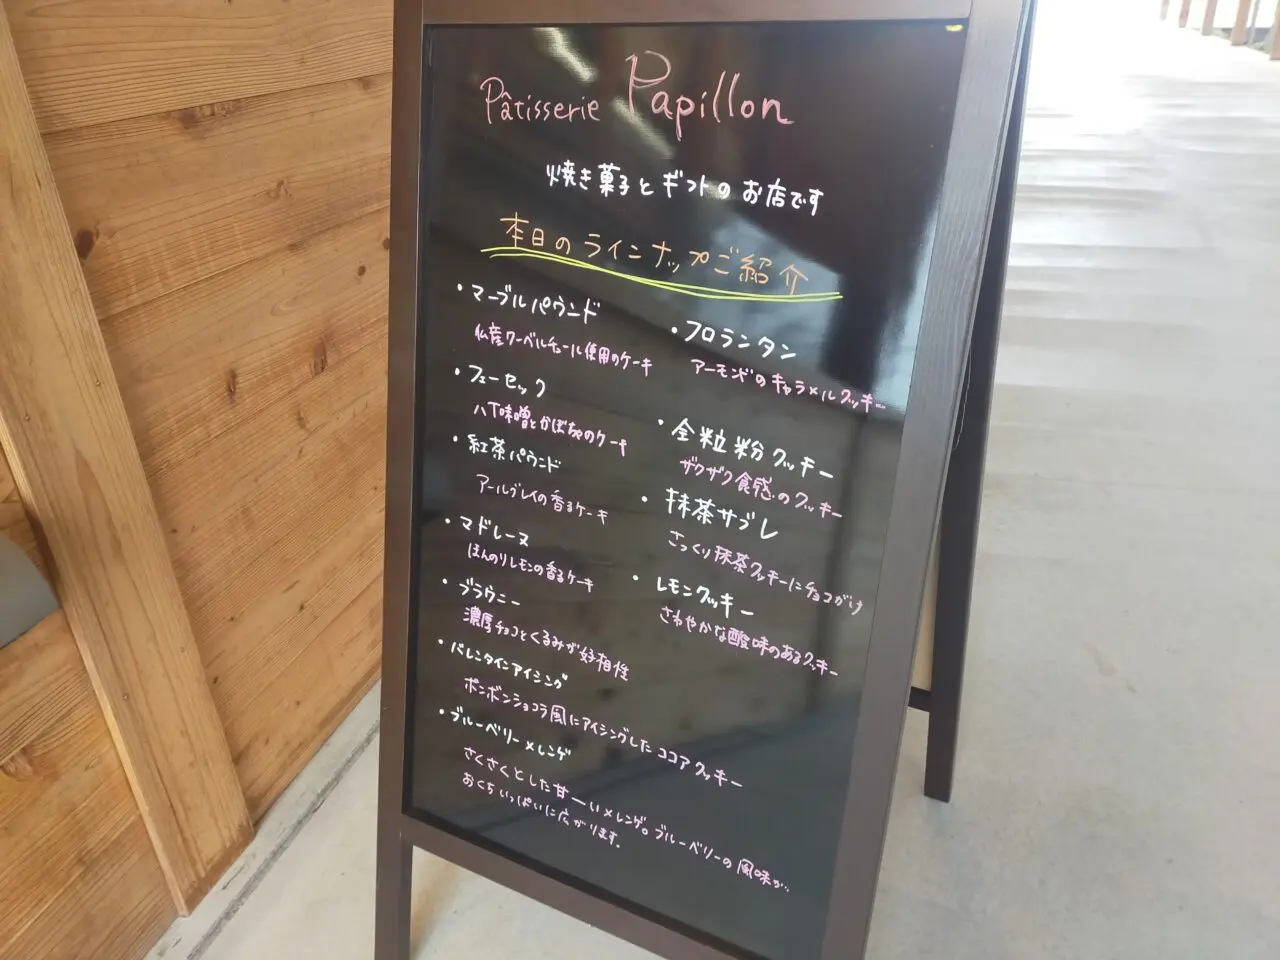 Pâtisserie Papillon
焼き菓子とギフトのお店です
本日のラインナップご紹介
・マーブルパウンド
仏産クーベルチュール使用のケーキ
・フェーセック
八丁味噌とかぼちゃのケーキ
・紅茶パウンド
アールグレイの香るケーキ
・マドレーヌ
ほんのりレモンの香るケーキ
・ブラウニー
濃厚チョコとくるみが好相性
・バレンタインアイシング
ボンボンショコラ風にアイシングしたココアクッキー
・ブルーベリーメレンゲ
さくさくとした甘ーいメレンゲ。ブルーベリーの風味が..
おくちいっぱいに広がります。
・フロランタン
アーモンドのキャラメルクッキー
・全粒粉クッキー
ザクザク食感のクッキー
・抹茶サブレ
さっくり抹茶クッキーにチョコがけ
・レモンクッキー
さわやかな酸味のあるクッキー